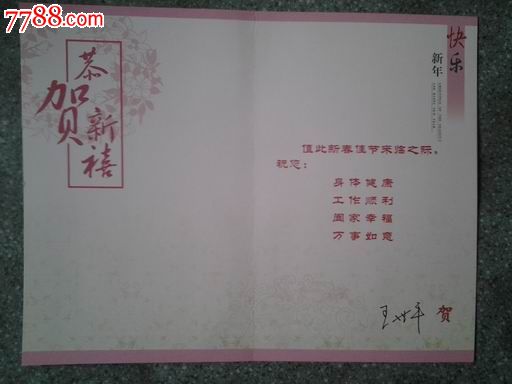 7788.com
恭
贺
新
禧
快乐
新年
值此新春佳节来临之际。
祝您：
身体健康
工作顺利
阖家幸福
万事如意
贺